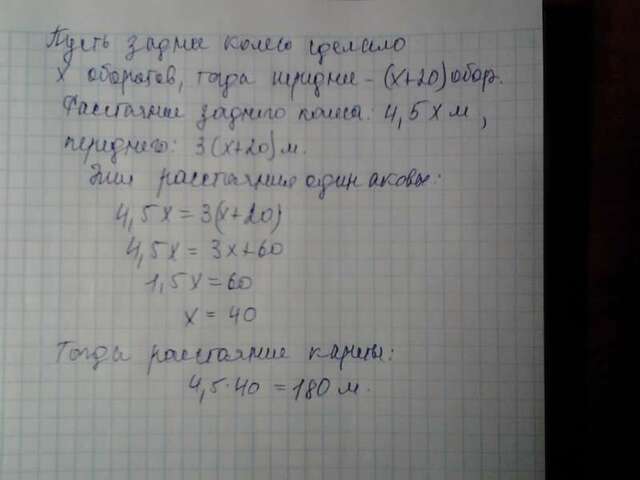 Пусть заднее колесо сделало
x оборотов, тогда переднее - (x+20) обор.
Расстояние заднего колеса: 4,5 x м,
переднего: 3(x+20) м.
Эти расстояния одинаковы:
4,5x = 3(x+20)
4,5x = 3x+60
1,5x = 60
x = 40
Тогда расстояние кареты:
4,5·40 = 180 м.